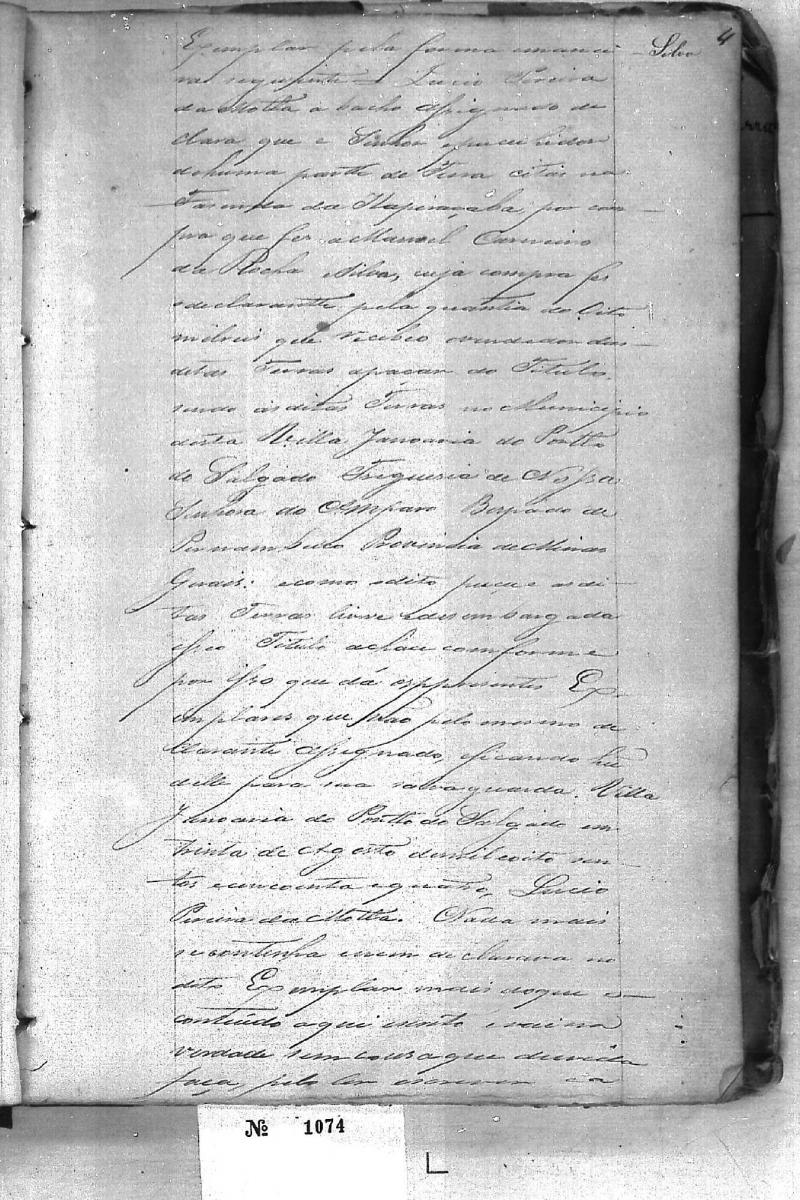 4
Silva
Exemplar pela forma emanei
ra seguinte = Lucio Pereira
da Motta a bacho assignado de
clara que e Senhor epucihidor
dehuma partte de Terra citas na
Fasenda da Itapiraçaba, por com
pra que fes a Manoel Carneiro
da Rocha e Silva, cuja compra fes
o declarante pela quantia de Oito
milreis que recebeo ovendedor das
ditas Terras apaçar do Titulo,
sendo as ditas Terras no Municipio
desta Villa Januaria do Portto
do Salgado Freguesia de Nossa
Senhora do Amparo Bispado de
Pernambuco Provincia de Minas
Gerais: ecomo odito puçue as di
tas Terras livre edesembargada
eseo Titulo achace comforme
por isso que dá osppresentes Ex
emplares que vão pelo mesmo de
clarante assignado, eficando hũ
delle para sua salvaguarda. Villa
Januaria do Portto do Salgado em
trinta de Agosto demil eoito sen
tos ecincoenta equatro, Lucio
Pereira da Motta. Nada mais
secontinha enem declarava no
dito Exemplar mais doque o
contiudo aqui escrito evai na
verdade sem cousa que duvida
faça, pelo ler escrever
Nº 1074